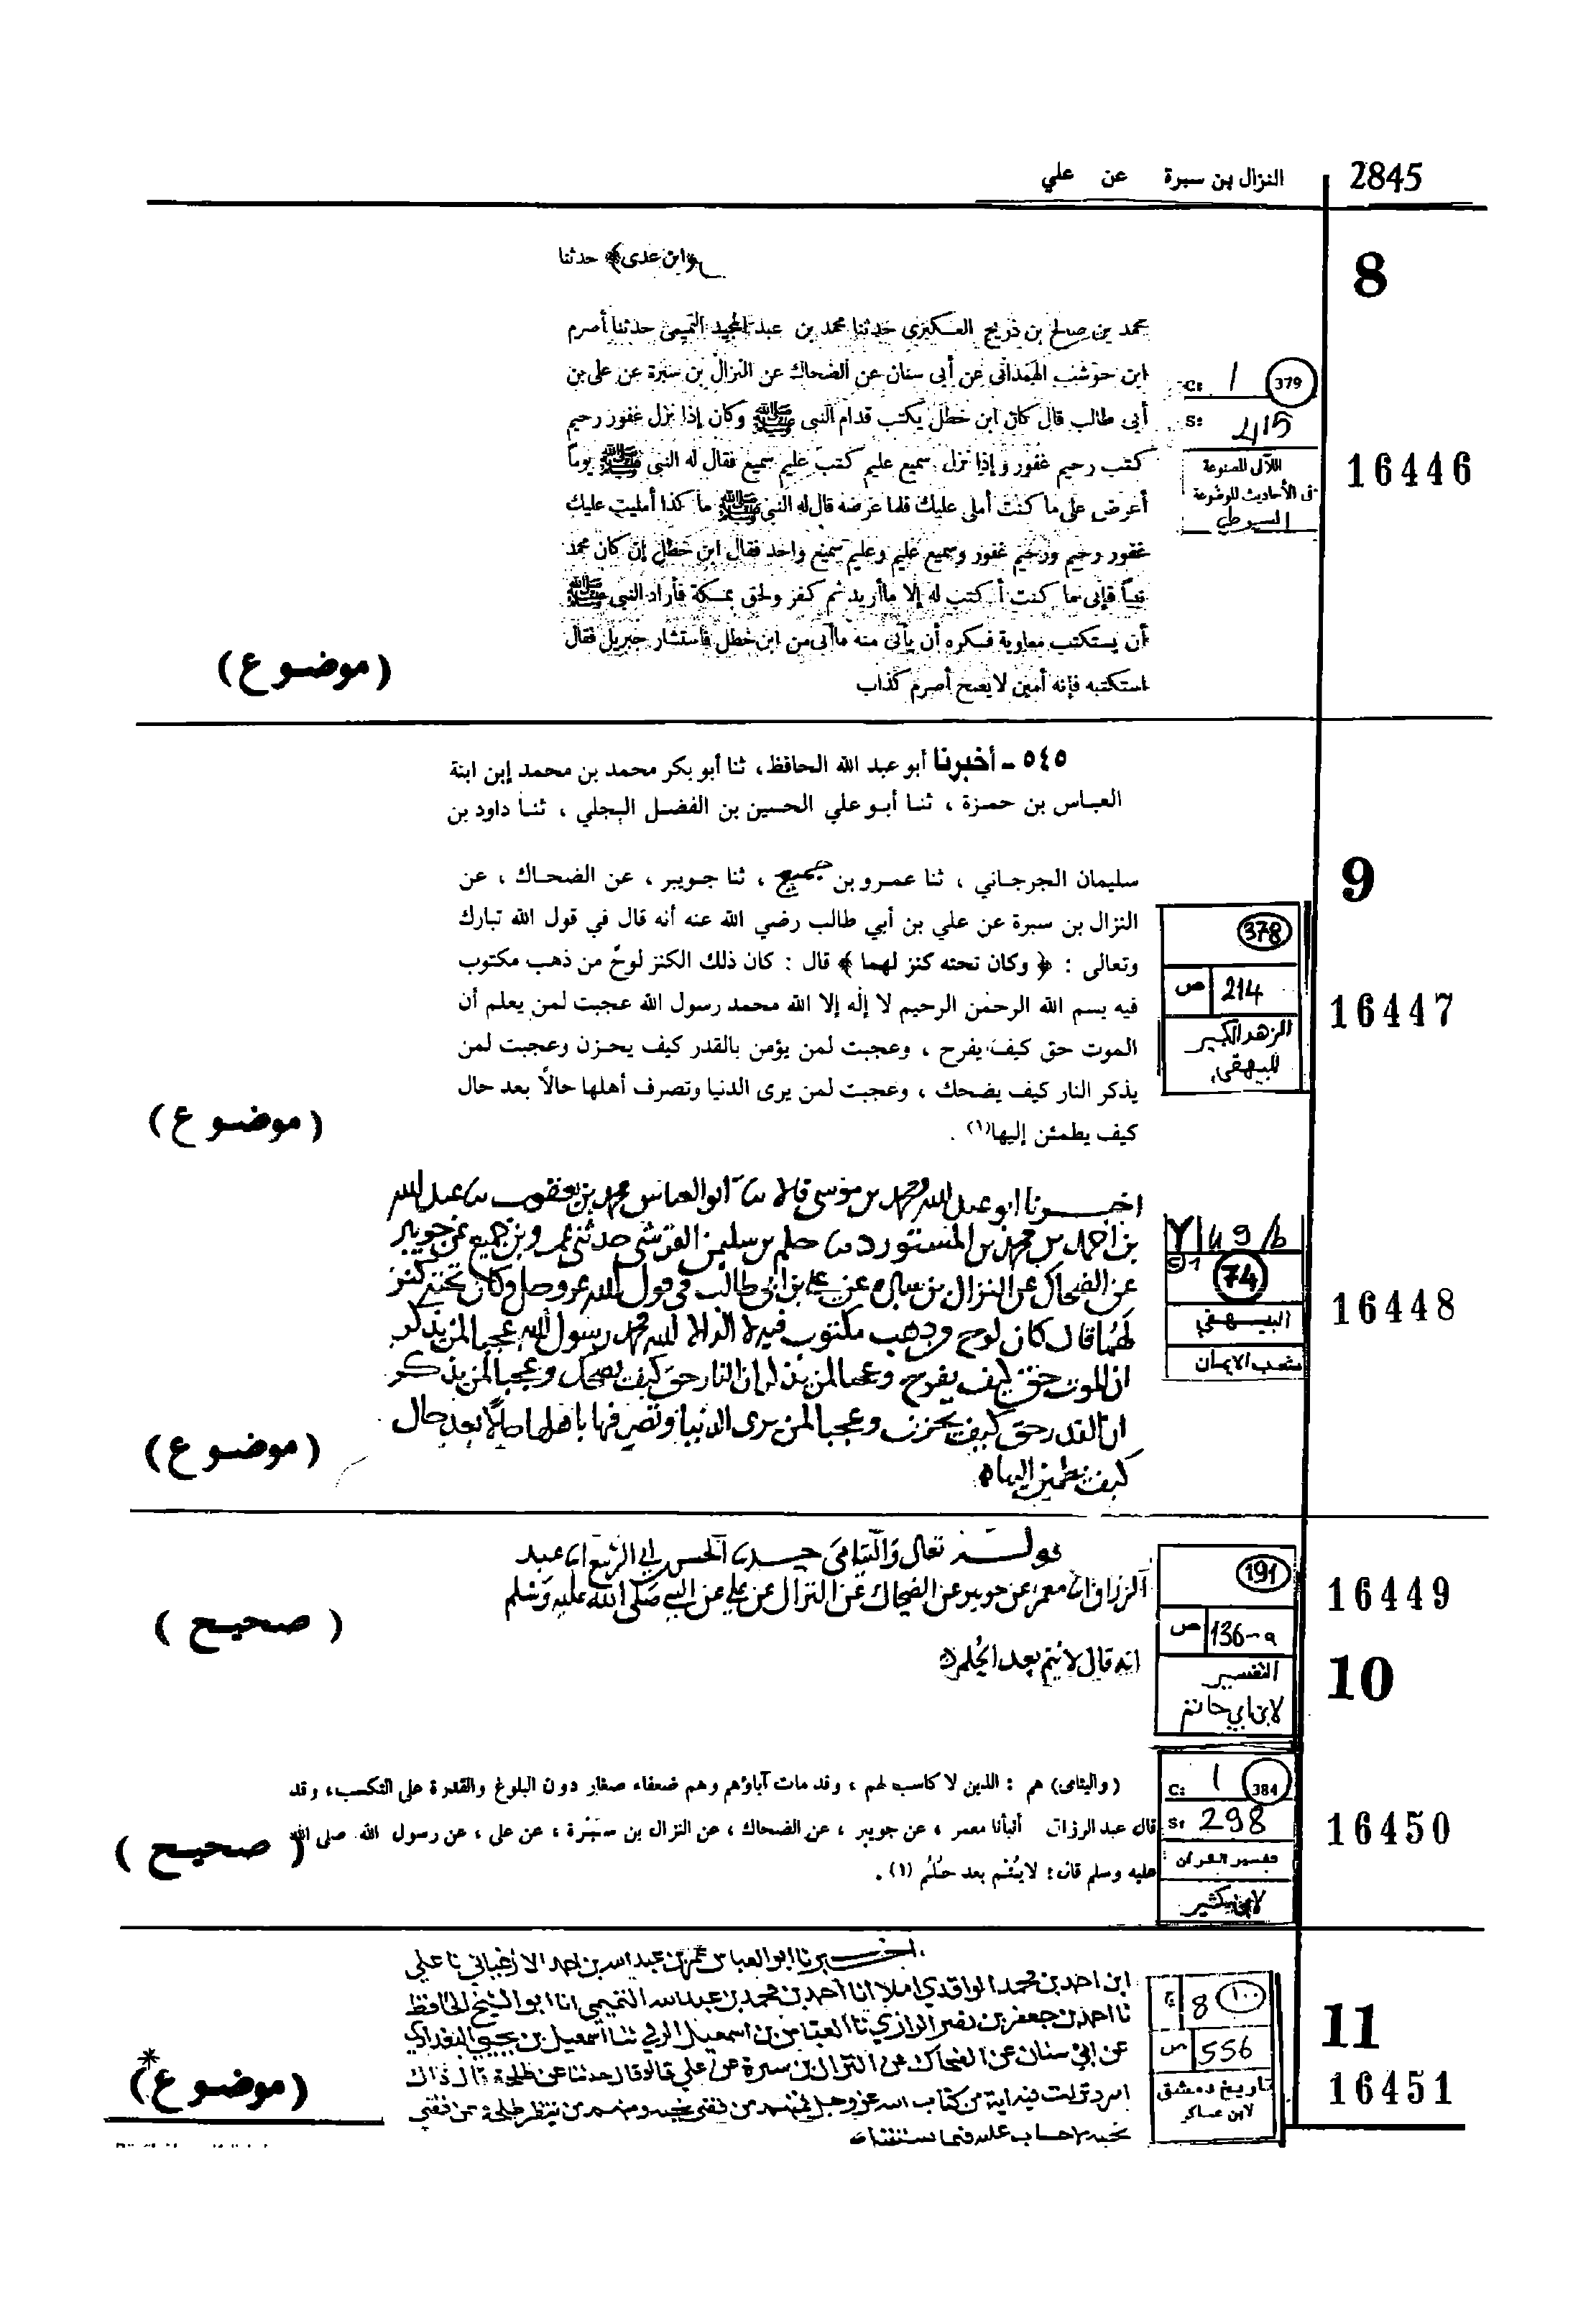 2845
النزال بن سبرة عن علي
8
﴿ابن عدى﴾ حدثنا
محمد بن صالح بن ذريح العكبرى حدثنا محمد بن عبد المجيد التميمى حدثنا أصرم
ابن حوشب الهمدانى عن أبى سنان عن الضحاك عن النزال بن سبرة عن على بن
أبى طالب قال كان ابن خطل يكتب قدام النبى ﷺ وكان إذا نزل غفور رحيم
كتب رحيم غفور وإذا نزل سميع عليم كتب عليم سميع فقال له النبى ﷺ يوماً
أعرض على ما كنت أملى عليك فلما عرضه قال له النبى ﷺ ما كذا أمليت عليك
غفور رحيم ورحيم غفور وسميع عليم وعليم سميع واحد فقال ابن خطل إن كان محمد
نبياً فإنى ما كنت أكتب له إلا ما أريد ثم كفر ولحق بمكة فأراد النبى ﷺ
أن يستكتب معاوية فكره أن يأتى منه ما أتى من ابن خطل فاستشار جبريل فقال
استكتبه فإنه أمين لا يصح أصرم كذاب
C: 1 379
S: 415
اللآلى المصنوعة
فى الأحاديث الموضوعة
السيوطي
16446
( موضوع )
9
٥٤٥ - أخبرنا أبو عبد الله الحافظ، ثنا أبو بكر محمد بن محمد إبن ابنة
العباس بن حمزة ، ثنا أبو علي الحسين بن الفضل البجلي ، ثنا داود بن
سليمان الجرجاني ، ثنا عمرو بن جميع ، ثنا جويبر ، عن الضحاك ، عن
النزال بن سبرة عن علي بن أبي طالب رضي الله عنه أنه قال في قول الله تبارك
وتعالى : ﴿ وكان تحته كنز لهما ﴾ قال : كان ذلك الكنز لوحٌ من ذهب مكتوب
فيه بسم الله الرحمٰن الرحيم لا إلٰه إلا الله محمد رسول الله عجبت لمن يعلم أن
الموت حق كيف يفرح ، وعجبت لمن يؤمن بالقدر كيف يحزن وعجبت لمن
يذكر النار كيف يضحك ، وعجبت لمن يرى الدنيا وتصرف أهلها حالًا بعد حال
كيف يطمئن إليها(١) .
378
ص 214
الزهد الكبير
للبيهقي
16447
( موضوع )
اخبرنا ابو عبد الله ومحمد بن موسى قالا ثنا ابو العباس محمد بن يعقوب ثنا عبد الله
بن احمد بن محمد بن المستورد ثنا حكم بن سليمن القرشي حدثني عمرو بن جميع عن جويبر
عن الضحاك عن النزال بن سبره عن علي بن ابي طالب في قول الله عز وجل وكان تحته كنز
لهما قال كان لوح من ذهب مكتوب فيه لا اله الا الله محمد رسول الله عجبا لمن يذكر
ان الموت حق كيف يفرح وعجبا لمن يذكر ان النار حق كيف يضحك وعجبا لمن يذكر
ان القدر حق كيف يحزن وعجبا لمن يرى الدنيا وتصرفها باهلها حالا بعد حال
كيف يطمئن اليها
49/b
74
البيهقي
شعب الايمان
16448
( موضوع )
قوله تعالى وَاليَتامَى حدثنا الحسن بن ابي الربيع انا عبد
الرزاق انا معمر عن جويبر عن الضحاك عن النزال عن علي عن النبي صَلى الله عليه وَسَلم
انه قال لا يُتم بعد الحُلم
191
ص 136-a
التفسير
لابن ابي حاتم
16449
( صحيح )
10
(واليتامى) هم : الذين لا كاسب لهم ، وقد مات آباؤهم وهم ضعفاء صغار دون البلوغ والقدرة على التكسب، وقد
قال عبد الرزاق أنبأنا معمر ، عن جويبر ، عن الضحاك ، عن النزال بن سَبْرة ، عن على ، عن رسول الله صلى الله
عليه وسلم قال : لا يُتْم بعد حُلُم (١) .
C: 1 384
S: 298
تفسير القرآن
لابن كثير
16450
( صحيح )
11
اخبرنا ابو العباس عمر بن عبد الله بن احمد الارغياني نا علي
ابن احمد بن محمد الواقدي املا انا احمد بن محمد بن عبد الله التميمي انا ابو الشيخ الحافظ
نا احمد بن جعفر بن نصر الرازي نا العباس بن اسمعيل الرقي ثنا اسمعيل بن يحيى البغدادي
عن ابي سنان عن الضحاك عن النزال بن سبرة عن علي قالوا قال حدثنا عن طلحة قال ذاك
امرؤ نزلت فيه اية من كتاب الله عز وجل فمنهم من قضى نحبه ومنهم من ينتظر طلحة ممن قضى
نحبه لا حساب عليه فيما يستقبل
ج 8 ١٠٠
ص 556
تاريخ دمشق
لابن عساكر
16451
( موضوع )*